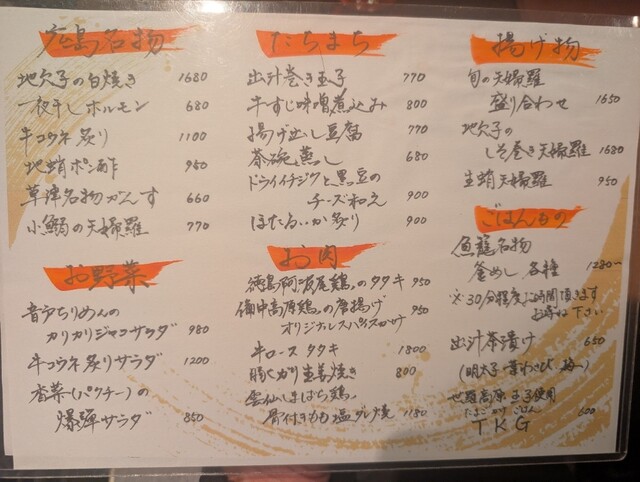 広島名物
地穴子の白焼き 1680
一夜干しホルモン 680
牛コウネ炙り 1100
地蛸ポン酢 950
草津名物がんす 660
小鰯の天婦羅 770
お野菜
音戸ちりめんの
カリカリジャコサラダ 980
牛コウネ炙りサラダ 1200
香菜(パクチー)の
爆弾サラダ 850
たちまち
出汁巻き玉子 770
牛すじ味噌煮込み 800
揚げ出し豆腐 770
茶碗蒸し 680
ドライイチジクと黒豆の
チーズ和え 900
ほたるいか炙り 900
お肉
徳島阿波尾鶏のタタキ 950
備中高原鶏の唐揚げ 950
オリジナルスパイスがけ
牛ロースタタキ 1800
豚バラ生姜焼き 800
雲仙しまばら鶏
骨付きもも塩ダレ焼 1180
揚げ物
旬の天婦羅
盛り合わせ 1650
地穴子の
しそ巻き天婦羅 1680
生蛸天婦羅 950
ごはんもの
魚龍名物
釜めし 各種 1280〜
※30分程度お時間頂きます
お尋ね下さい
出汁茶漬け 650
(明太子・葉わさび・梅)
世羅高原玉子使用
たまごかけごはん
TKG 600